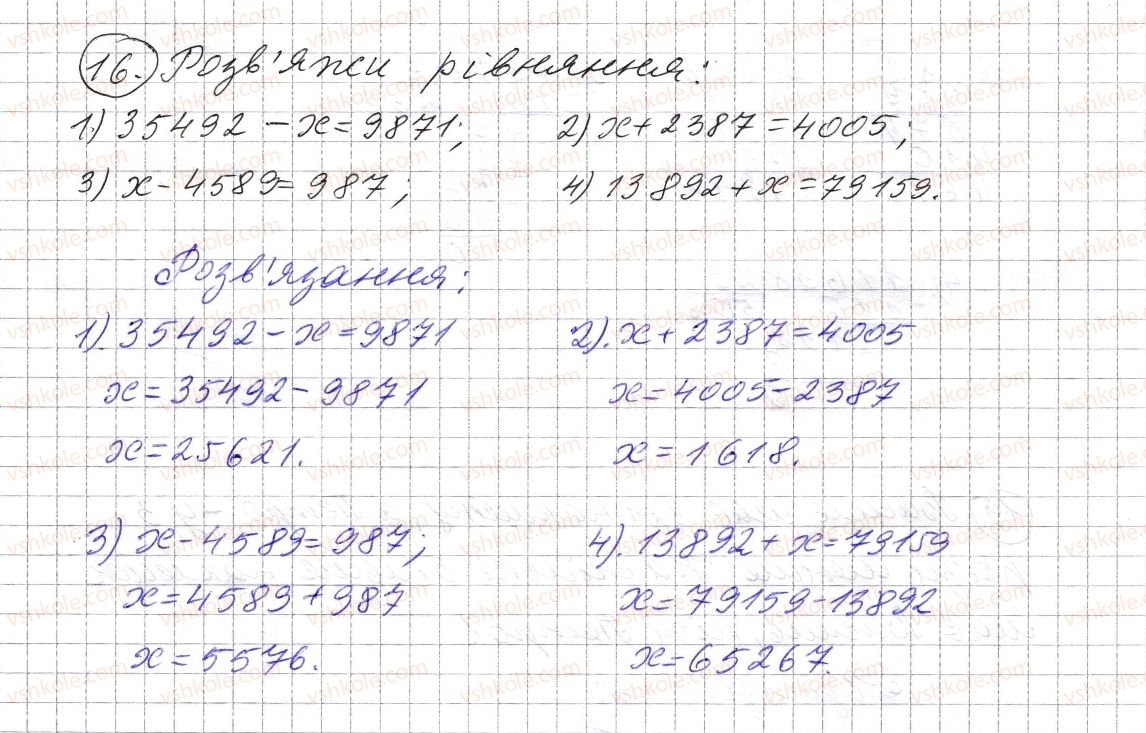 16. Розв'яжи рівняння:
1) 35492 - x = 9871; 2) x + 2387 = 4005;
3) x - 4589 = 987; 4) 13892 + x = 79159.
Розв'язання:
1). 35492 - x = 9871 2). x + 2387 = 4005
x = 35492 - 9871 x = 4005 - 2387
x = 25621. x = 1618.
3) x - 4589 = 987; 4). 13892 + x = 79159
x = 4589 + 987 x = 79159 - 13892
x = 5576. x = 65267.